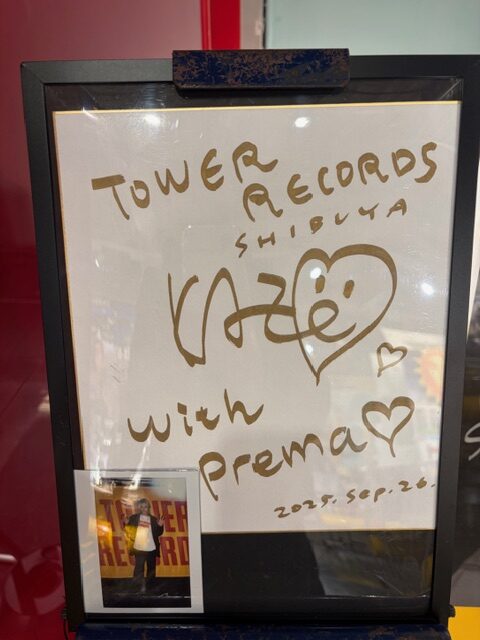 TOWER
RECORDS
SHIBUYA
KAZE
with
prema♡
2025. Sep. 26.
TOWER
RECORD